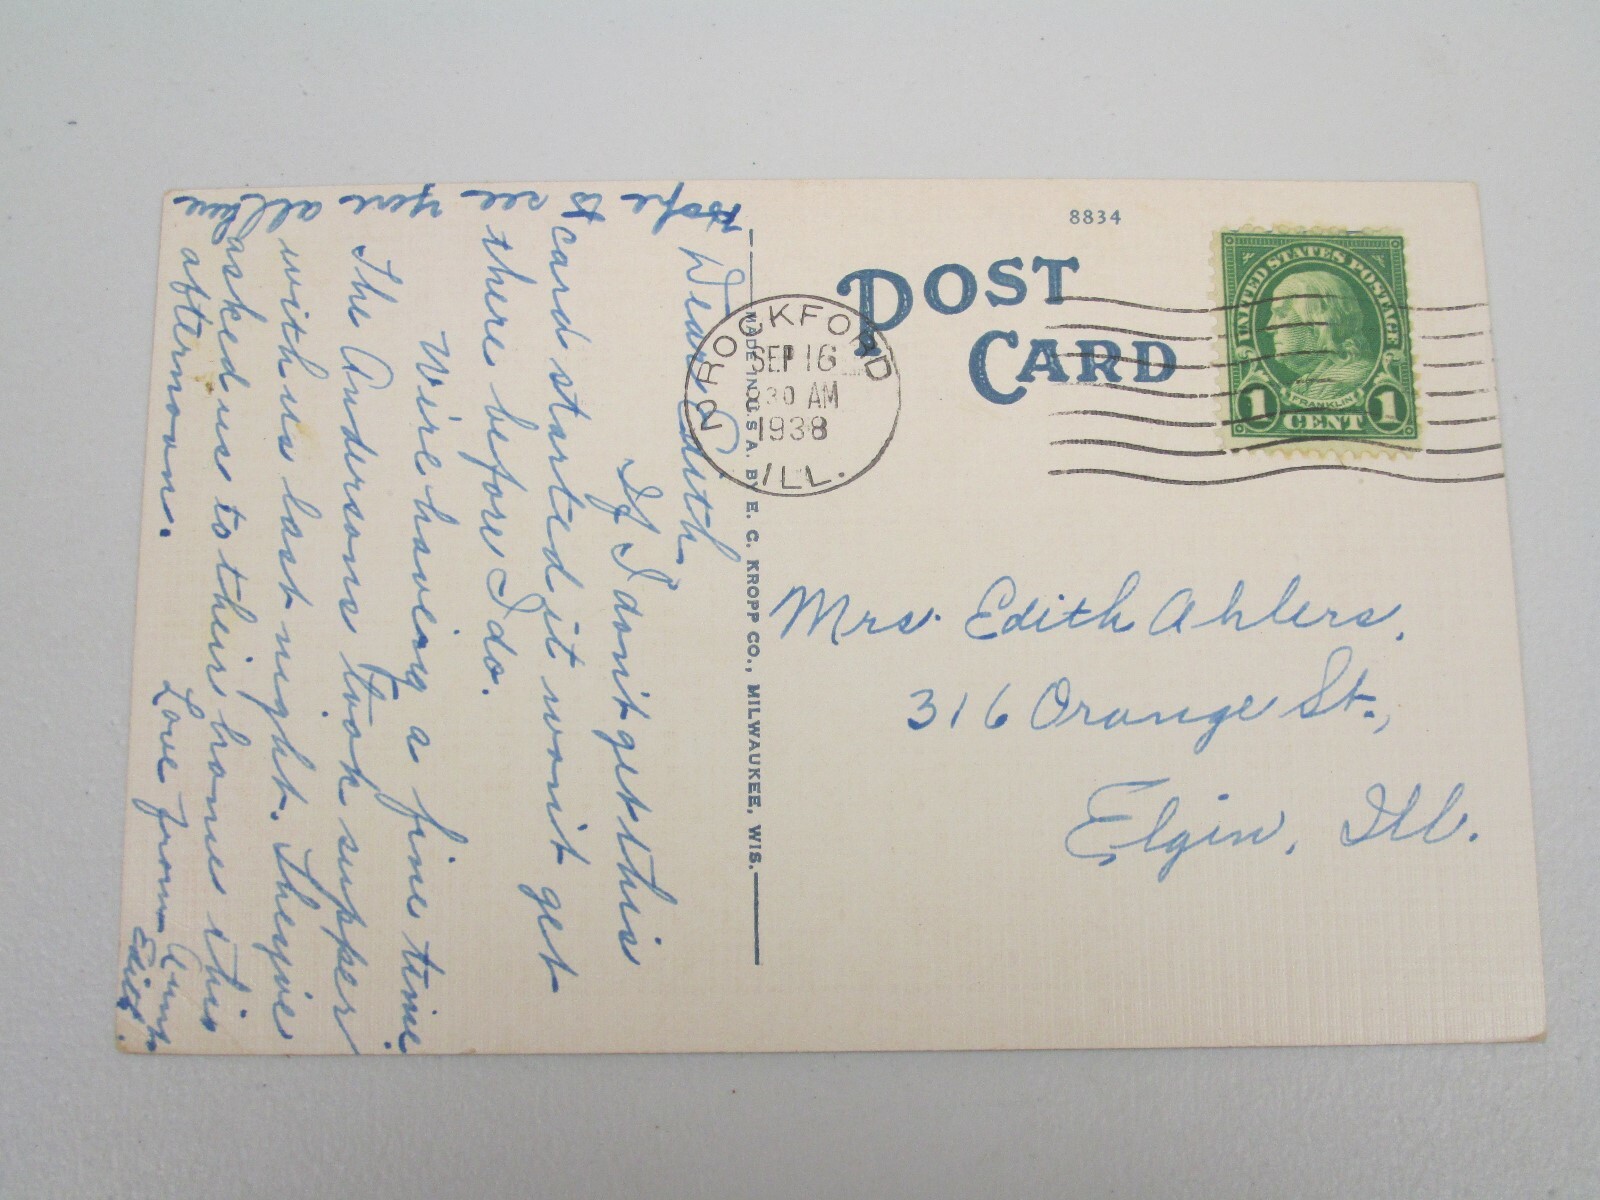 Hope to see you all
Dear Edith,
If I don't get this
card started it won't get
there before I do.
We're having a fine time.
The Andersons took supper
with us last night. They've
asked us to their home this
afternoon.
Love from Aunt
Edith.
8834
POST
CARD
UNITED STATES POSTAGE
FRANKLIN
1 CENT 1
ROCKFORD
SEP 16
830 AM
1938
ILL.
MADE IN U.S.A. BY E. C. KROPP CO., MILWAUKEE, WIS.
Mrs. Edith Ahlers,
316 Orange St.,
Elgin, Ill.